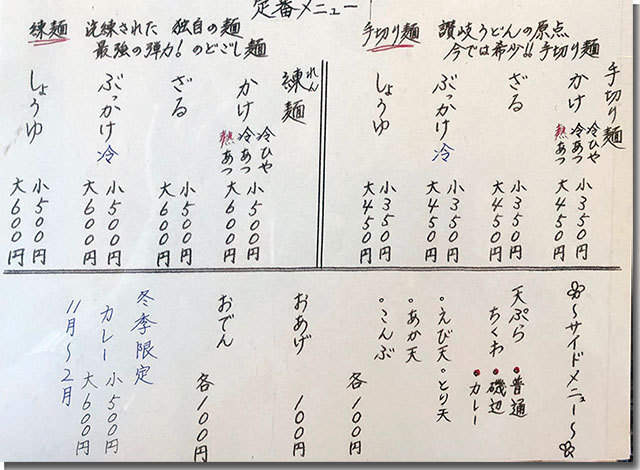 定番メニュー
手切り麺 讃岐うどんの原点
今では希少!!手切り麺
練麺 洗練された 独自の麺
最強の弾力! のどごし麺
手切り麺
かけ 冷ひや
冷あつ
熱あつ
小350円
大450円
ざる
小350円
大450円
ぶっかけ 冷
小350円
大450円
しょうゆ
小350円
大450円
練麺
れん
かけ 冷ひや
冷あつ
熱あつ
小500円
大600円
ざる
小500円
大600円
ぶっかけ 冷
小500円
大600円
しょうゆ
小500円
大600円
〜サイドメニュー〜
天ぷら ・普通
ちくわ ・磯辺
・カレー
・えび天 ・とり天
・あか天
・こんぶ
各100円
おあげ 100円
おでん 各100円
冬季限定
カレー 小500円
大600円
11月〜2月